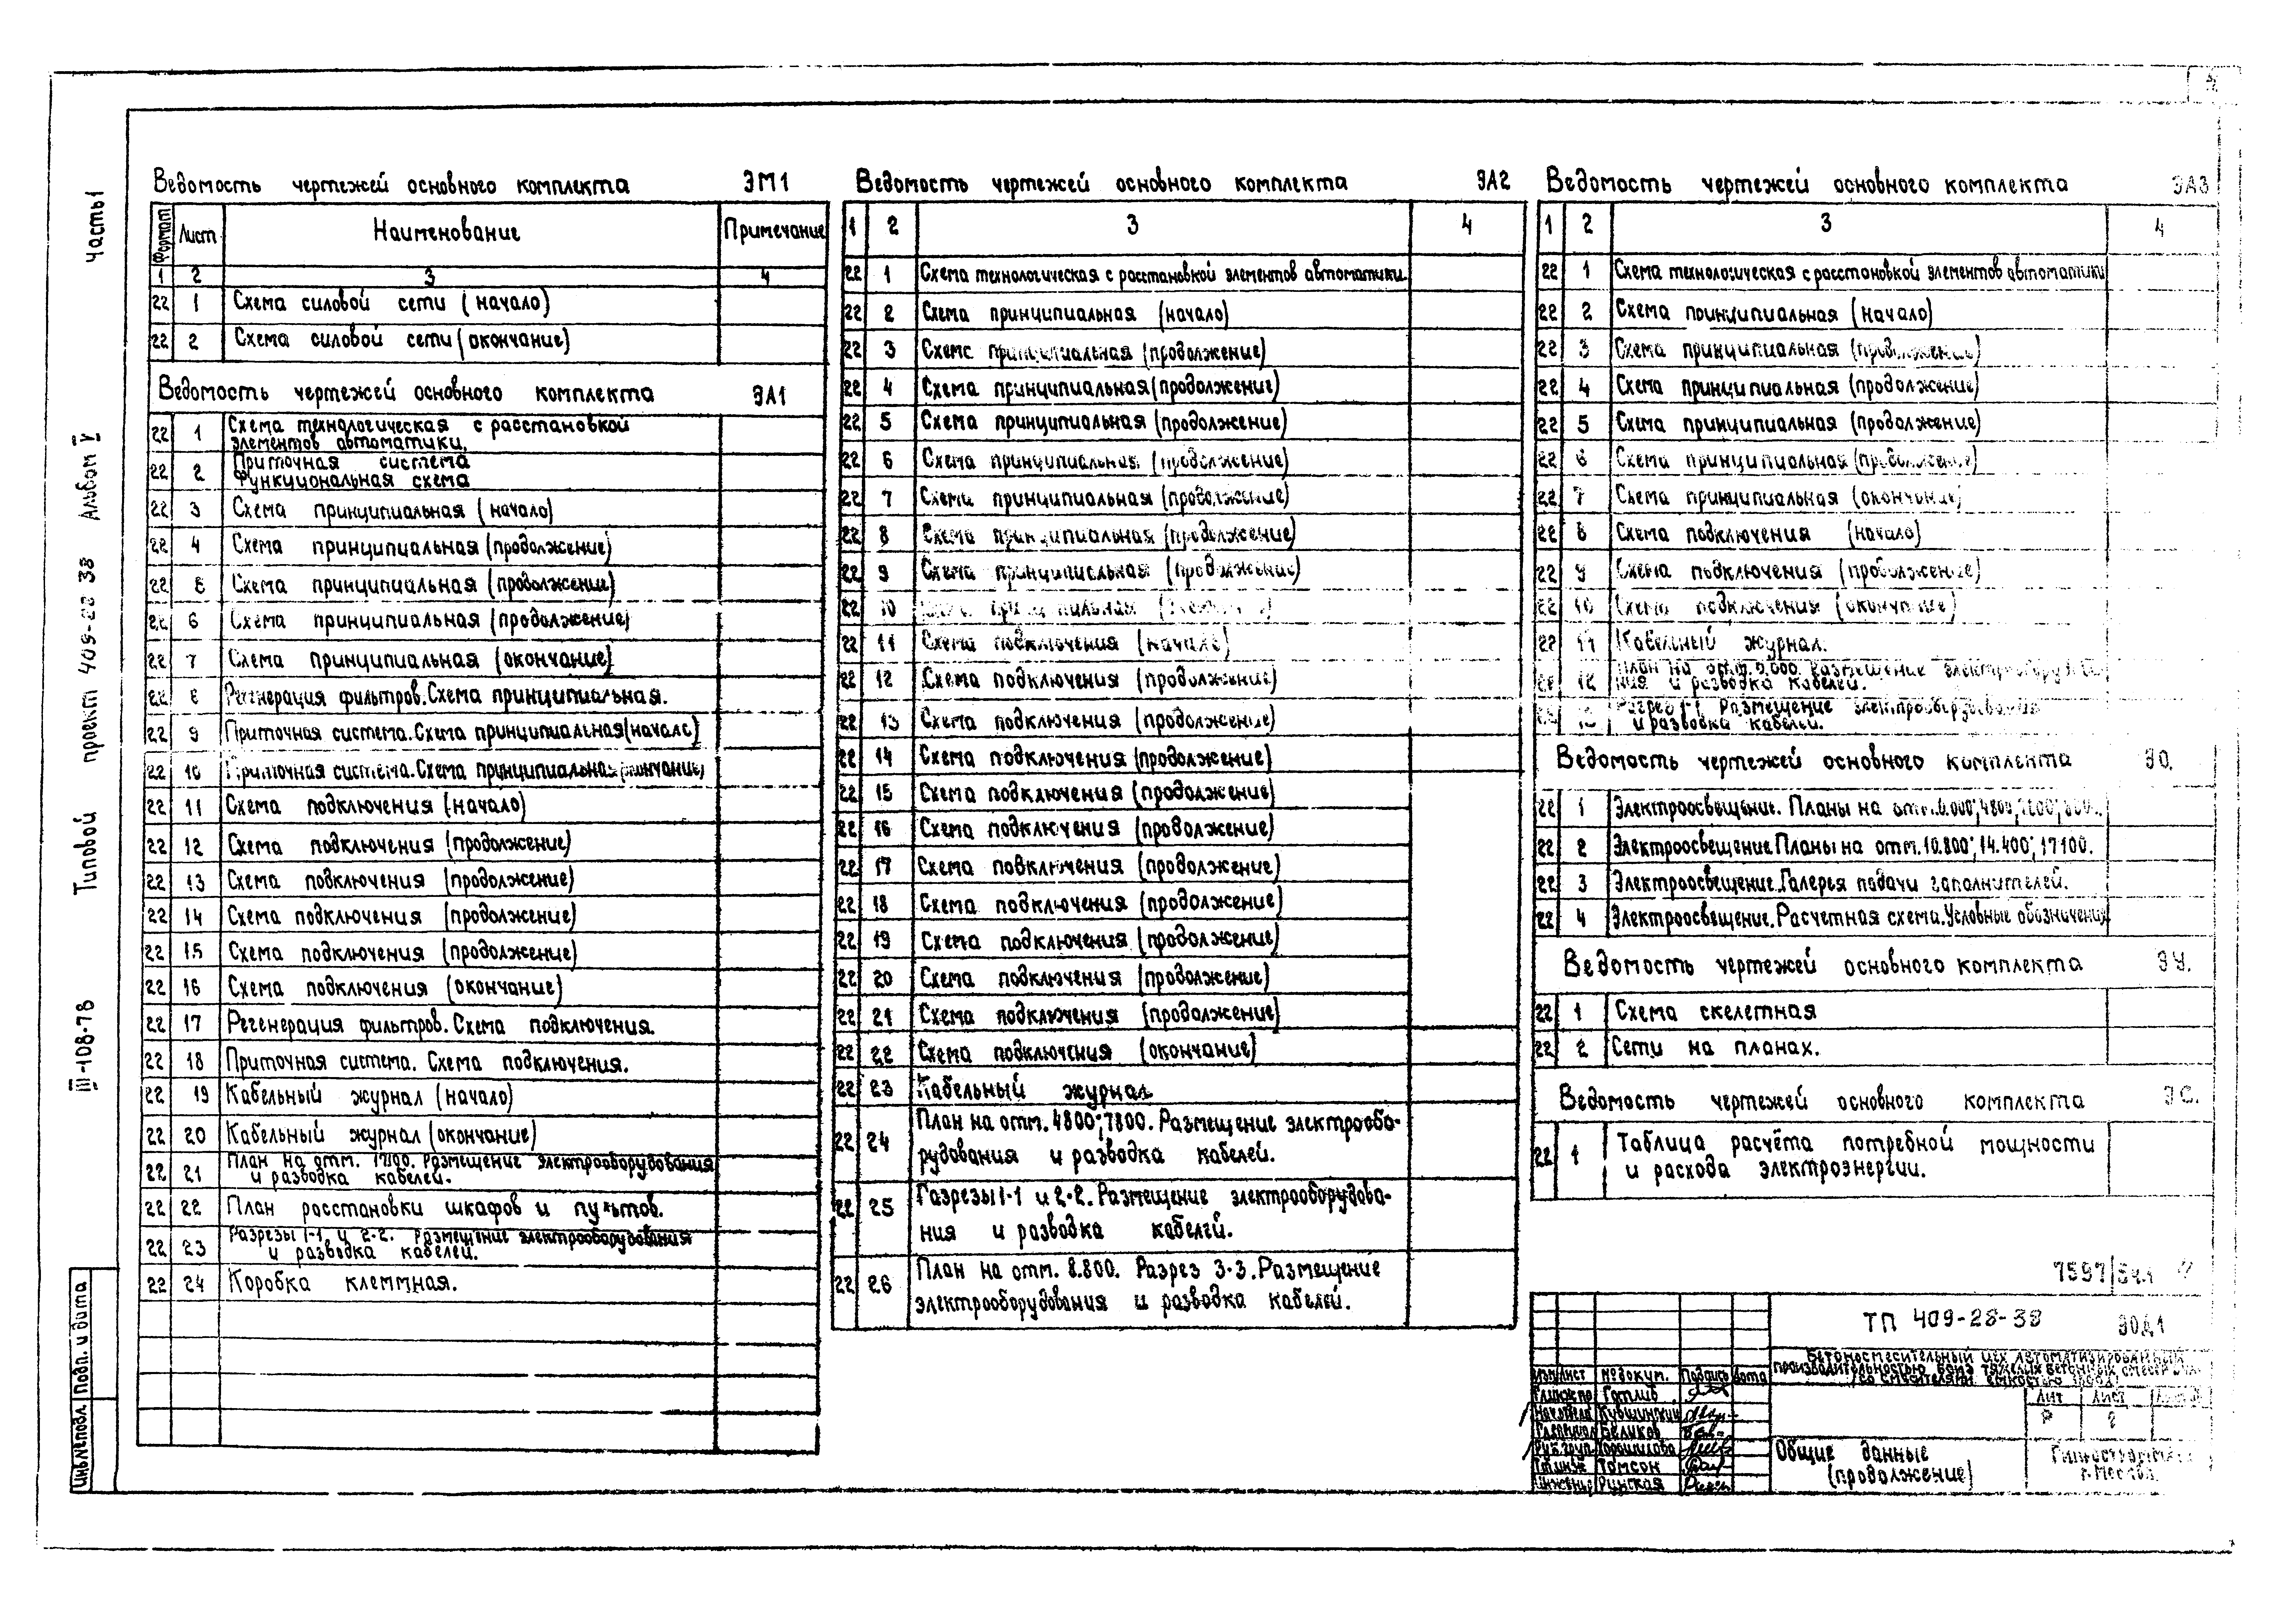 часть 1
Альбом V
Типовой проект 409-28-38
III-108-78
Инв.№подл. Подп. и дата
Ведомость чертежей основного комплекта ЭМ1
Формат Лист Наименование Примечание
1 2 3 4
22 1 Схема силовой сети (начало)
22 2 Схема силовой сети (окончание)
Ведомость чертежей основного комплекта ЭА1
22 1 Схема технологическая с расстановкой
элементов автоматики.
22 2 Приточная система
Функциональная схема
22 3 Схема принципиальная (начало)
22 4 Схема принципиальная (продолжение)
22 5 Схема принципиальная (продолжение)
22 6 Схема принципиальная (продолжение)
22 7 Схема принципиальная (окончание)
22 8 Регенерация фильтров. Схема принципиальная.
22 9 Приточная система. Схема принципиальная (начало)
22 10 Приточная система. Схема принципиальная (окончание)
22 11 Схема подключения (начало)
22 12 Схема подключения (продолжение)
22 13 Схема подключения (продолжение)
22 14 Схема подключения (продолжение)
22 15 Схема подключения (продолжение)
22 16 Схема подключения (окончание)
22 17 Регенерация фильтров. Схема подключения.
22 18 Приточная система. Схема подключения.
22 19 Кабельный журнал (начало)
22 20 Кабельный журнал (окончание)
22 21 План на отм. 17100. Размещение электрооборудования
и разводка кабелей.
22 22 План расстановки шкафов и пультов.
22 23 Разрезы 1-1 и 2-2. Размещение электрооборудования
и разводка кабелей.
22 24 Коробка клеммная.
Ведомость чертежей основного комплекта ЭА2
1 2 3 4
22 1 Схема технологическая с расстановкой элементов автоматики.
22 2 Схема принципиальная (начало)
22 3 Схема принципиальная (продолжение)
22 4 Схема принципиальная (продолжение)
22 5 Схема принципиальная (продолжение)
22 6 Схема принципиальная (продолжение)
22 7 Схема принципиальная (продолжение)
22 8 Схема принципиальная (продолжение)
22 9 Схема принципиальная (продолжение)
22 10
22 11 Схема подключения (начало)
22 12 Схема подключения (продолжение)
22 13 Схема подключения (продолжение)
22 14 Схема подключения (продолжение)
22 15 Схема подключения (продолжение)
22 16 Схема подключения (продолжение)
22 17 Схема подключения (продолжение)
22 18 Схема подключения (продолжение)
22 19 Схема подключения (продолжение)
22 20 Схема подключения (продолжение)
22 21 Схема подключения (продолжение)
22 22 Схема подключения (окончание)
22 23 Кабельный журнал
22 24 План на отм. 4800; 7800. Размещение электрообо-
рудования и разводка кабелей.
22 25 Разрезы 1-1 и 2-2. Размещение электрооборудова-
ния и разводка кабелей.
22 26 План на отм. 8.800. Разрез 3-3. Размещение
электрооборудования и разводка кабелей.
Ведомость чертежей основного комплекта ЭА3
1 2 3 4
22 1 Схема технологическая с расстановкой элементов автоматики
22 2 Схема принципиальная (начало)
22 3 Схема принципиальная (продолжение)
22 4 Схема принципиальная (продолжение)
22 5 Схема принципиальная (продолжение)
22 6 Схема принципиальная (продолжение)
22 7 Схема принципиальная (окончание)
22 8 Схема подключения (начало)
22 9 Схема подключения (продолжение)
22 10 Схема подключения (окончание)
22 11 Кабельный журнал.
22 12 План на отм. 0.000. Размещение электрооборудова-
ния и разводка кабелей.
22 13 Разрез 1-1. Размещение электрооборудования
и разводка кабелей.
Ведомость чертежей основного комплекта ЭО.
22 1 Электроосвещение. Планы на отм. 0.000; 4800;
22 2 Электроосвещение. Планы на отм. 10.800; 14.400; 17100.
22 3 Электроосвещение. Галерея подачи заполнителей.
22 4 Электроосвещение. Расчетная схема. Условные обозначения
Ведомость чертежей основного комплекта ЭУ.
22 1 Схема скелетная
22 2 Сети на планах.
Ведомость чертежей основного комплекта ЭС.
22 1 Таблица расчёта потребной мощности
и расхода электроэнергии.
7597/5ч.1
ТП 409-28-38 ЭОД1
Бетоносмесительный цех автоматизированный
производительностью
со смесителями емкостью
Изм Лист №докум. Подпись Дата
Готлиб
Кувшинский
Беликов
Рук.груп. Ворошилова
Ст.инж Томсон
Инженер Рунская
Лит Лист
Р 2
Общие данные
(продолжение)
г.Москва